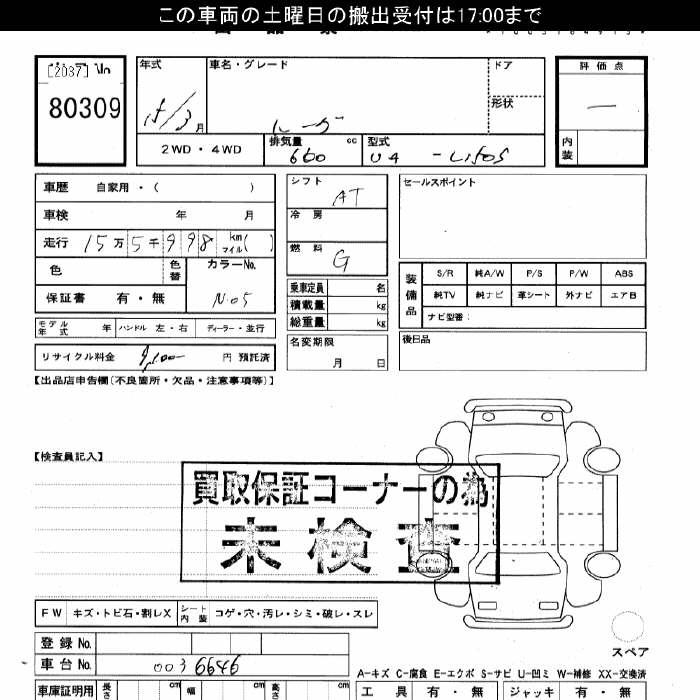 この車両の土曜日の搬出受付は17:00まで
[2037] No
80309
年式 車名・グレード ドア 評価点
15/3月 形状 —
2WD・4WD 排気量 660 cc 型式 内装
車歴 自家用・( )
シフト AT
セールスポイント
車検 年 月
冷房
走行 15万5千998 km マイル( )
燃料 G
色 色替 カラーNo. N.05
保証書 有・無
乗車定員 名
積載量 kg
総重量 kg
装備品 S/R 純A/W P/S P/W ABS
純TV 純ナビ 革シート 外ナビ エアB
ナビ型番:
モデル年式 年 ハンドル 左・右 ディーラー・並行
名変期限 月 日
後日品
リサイクル料金 円 預託済
【出品店申告欄(不良箇所・欠品・注意事項等)】
【検査員記入】
買取保証コーナーの為
未検査
FW キズ・トビ石・割レX シート内装 コゲ・穴・汚レ・シミ・破レ・スレ
登録No.
スペア
車台No. 0036646
A-キズ C-腐食 E-エクボ S-サビ U-凹ミ W-補修 XX-交換済
車庫証明用 長さ cm 幅 cm 高さ cm 工具 有・無 ジャッキ 有・無